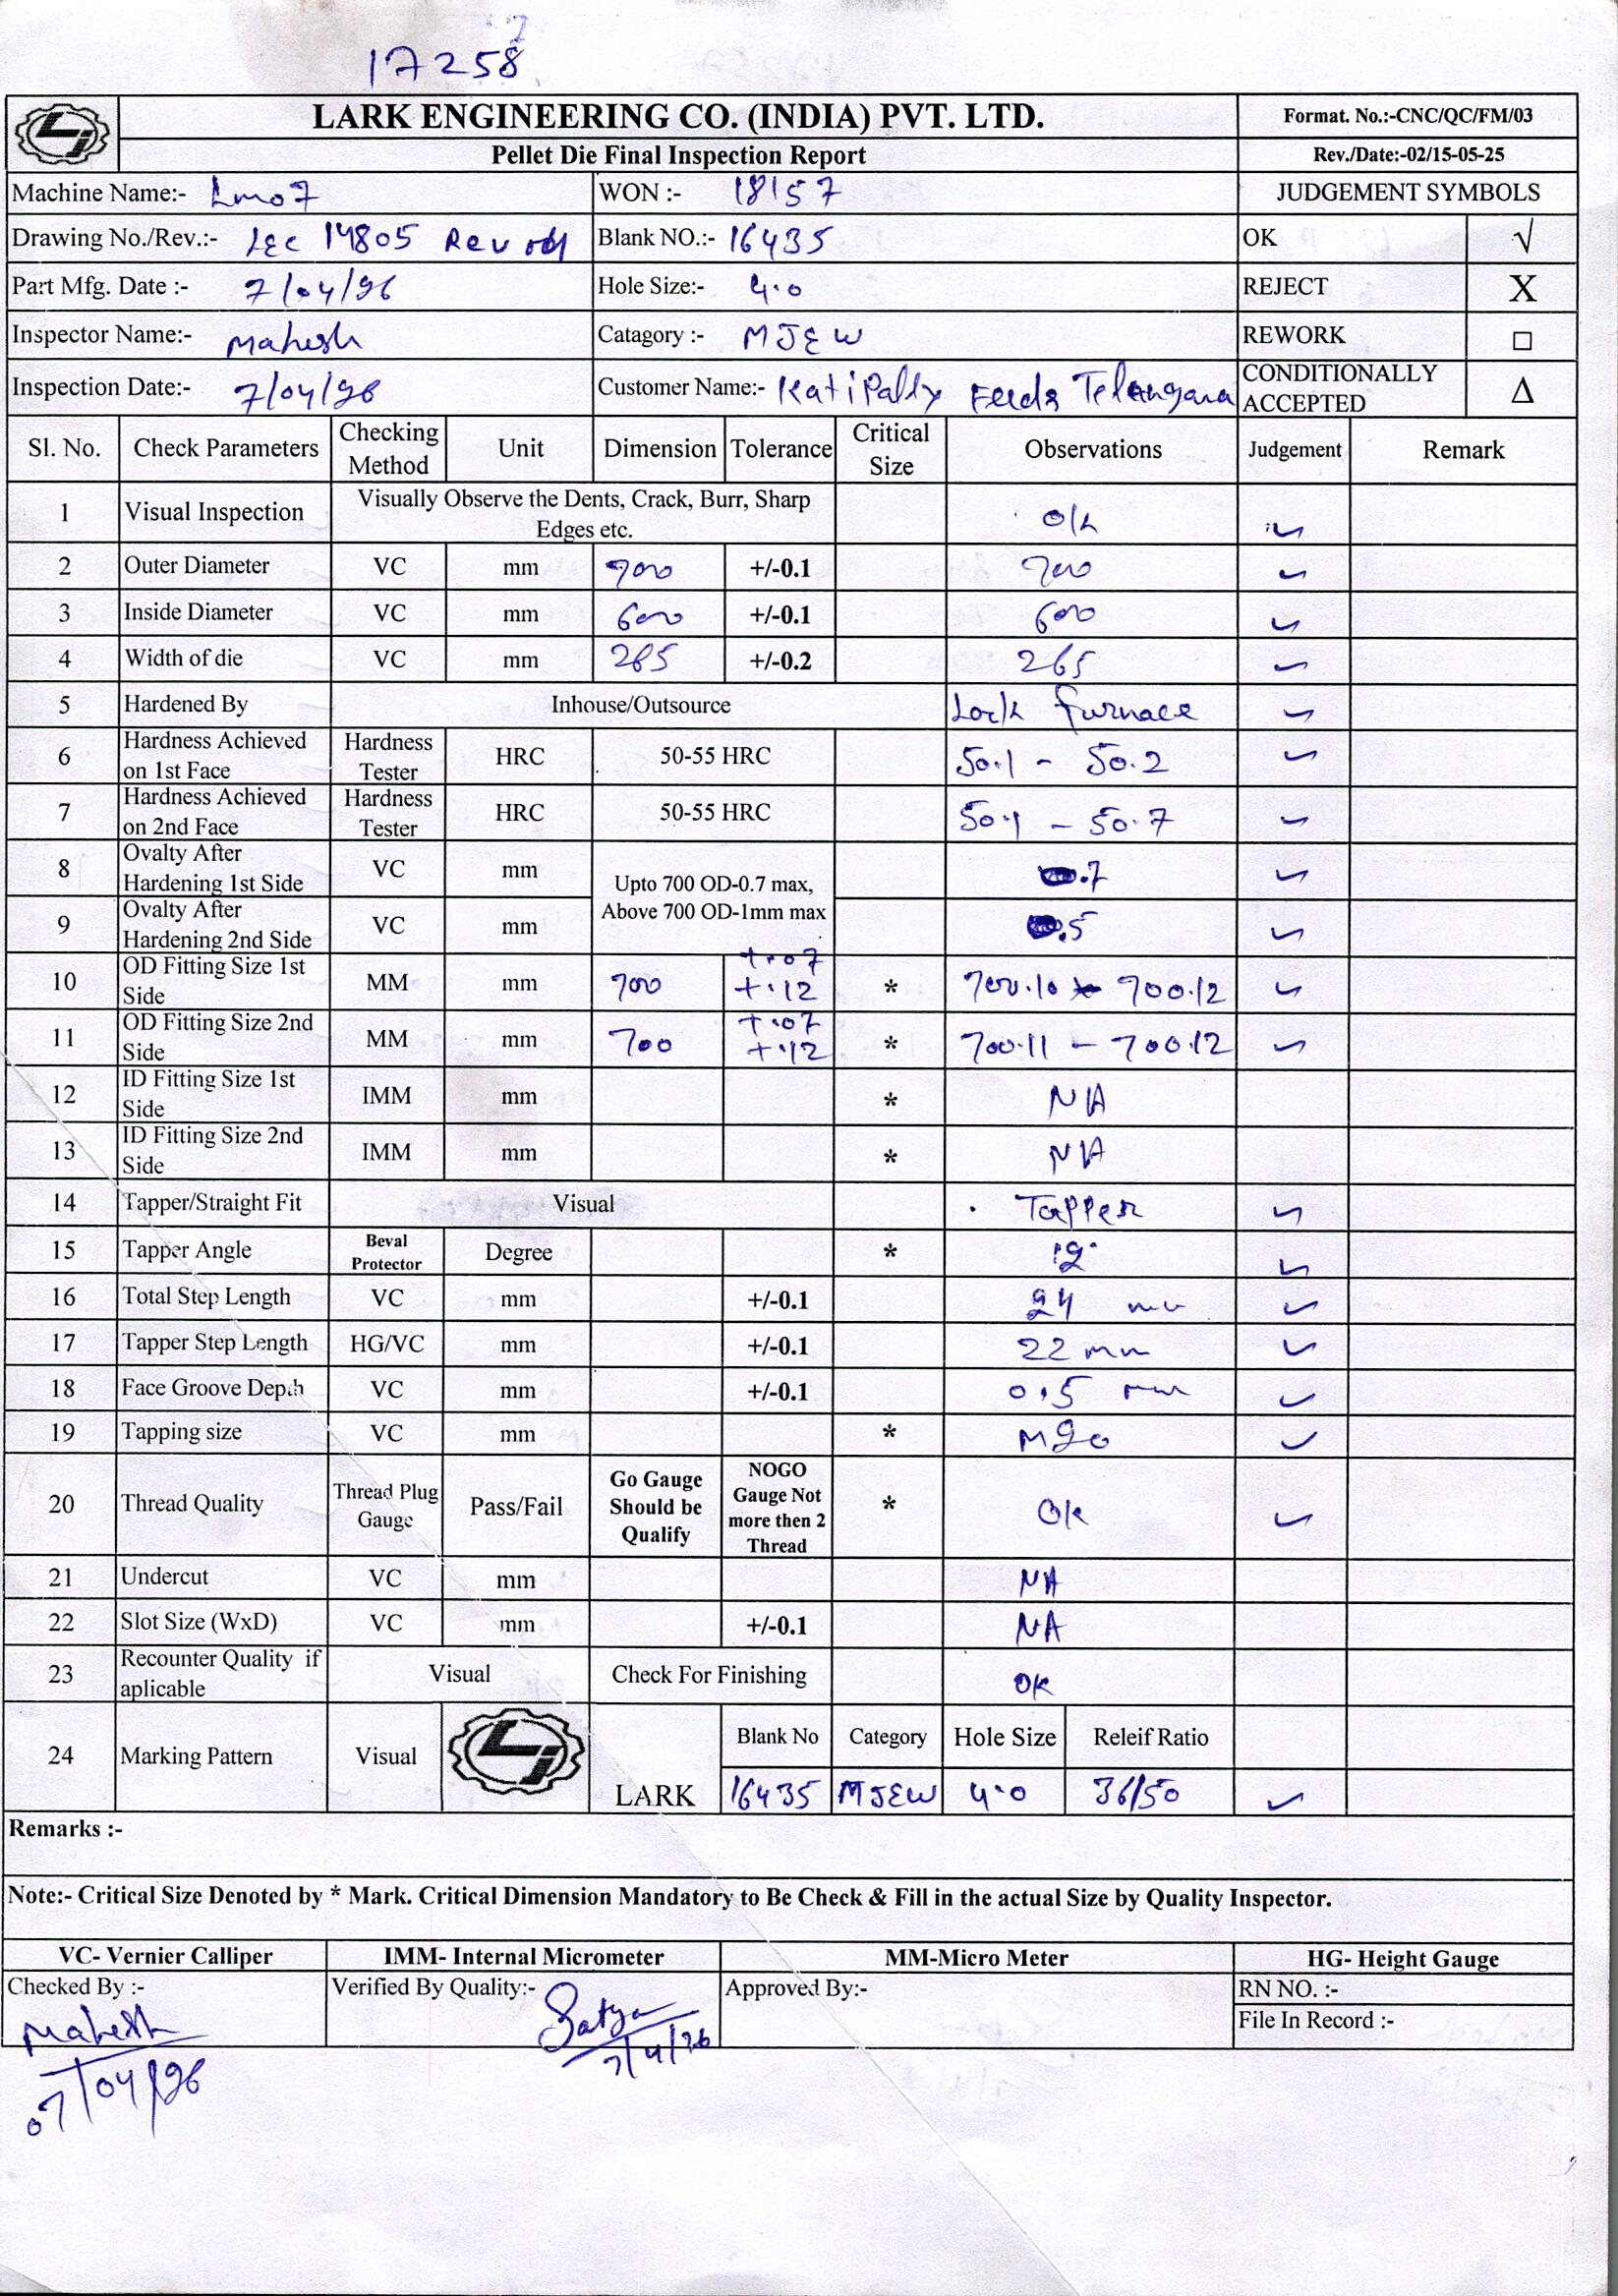 17258
LARK ENGINEERING CO. (INDIA) PVT. LTD. Format. No.:-CNC/QC/FM/03
Pellet Die Final Inspection Report Rev./Date:-02/15-05-25
Machine Name:- Lm07 WON :- 18157 JUDGEMENT SYMBOLS
Drawing No./Rev.:- LEC 14805 Rev Blank NO.:- 16435 OK √
Part Mfg. Date :- 7/04/26 Hole Size:- 4.0 REJECT X
Inspector Name:- Mahesh Catagory :- MJEW REWORK □
Inspection Date:- 7/04/26 Customer Name:- KatiPally Feeds Telangana CONDITIONALLY ACCEPTED Δ
Sl. No. Check Parameters Checking Method Unit Dimension Tolerance Critical Size Observations Judgement Remark
1 Visual Inspection Visually Observe the Dents, Crack, Burr, Sharp Edges etc. O/k ✓
2 Outer Diameter VC mm 700 +/-0.1 700 ✓
3 Inside Diameter VC mm 600 +/-0.1 600 ✓
4 Width of die VC mm 265 +/-0.2 265 ✓
5 Hardened By Inhouse/Outsource Lark furnace ✓
6 Hardness Achieved on 1st Face Hardness Tester HRC 50-55 HRC 50.1 - 50.2 ✓
7 Hardness Achieved on 2nd Face Hardness Tester HRC 50-55 HRC 50.1 - 50.7 ✓
8 Ovalty After Hardening 1st Side VC mm Upto 700 OD-0.7 max, Above 700 OD-1mm max .7 ✓
9 Ovalty After Hardening 2nd Side VC mm .5 ✓
10 OD Fitting Size 1st Side MM mm 700 +.07 +.12 * 700.10 - 700.12 ✓
11 OD Fitting Size 2nd Side MM mm 700 +.07 +.12 * 700.11 - 700.12 ✓
12 ID Fitting Size 1st Side IMM mm * NA
13 ID Fitting Size 2nd Side IMM mm * NA
14 Tapper/Straight Fit Visual Tapper ✓
15 Tapper Angle Beval Protector Degree * ✓
16 Total Step Length VC mm +/-0.1 24 mm ✓
17 Tapper Step Length HG/VC mm +/-0.1 22 mm ✓
18 Face Groove Depth VC mm +/-0.1 0.5 mm ✓
19 Tapping size VC mm * M20 ✓
20 Thread Quality Thread Plug Gauge Pass/Fail Go Gauge Should be Qualify NOGO Gauge Not more then 2 Thread * Ok ✓
21 Undercut VC mm NA
22 Slot Size (WxD) VC mm +/-0.1 NA
23 Recounter Quality if aplicable Visual Check For Finishing OK
24 Marking Pattern Visual LARK Blank No Category Hole Size Releif Ratio
16435 MJEW 4.0 36/50 ✓
Remarks :-
Note:- Critical Size Denoted by * Mark. Critical Dimension Mandatory to Be Check & Fill in the actual Size by Quality Inspector.
VC- Vernier Calliper IMM- Internal Micrometer MM-Micro Meter HG- Height Gauge
Checked By :- Verified By Quality:- Approved By:- RN NO. :-
File In Record :-
Mahesh Satya
07/04/26 7/4/26